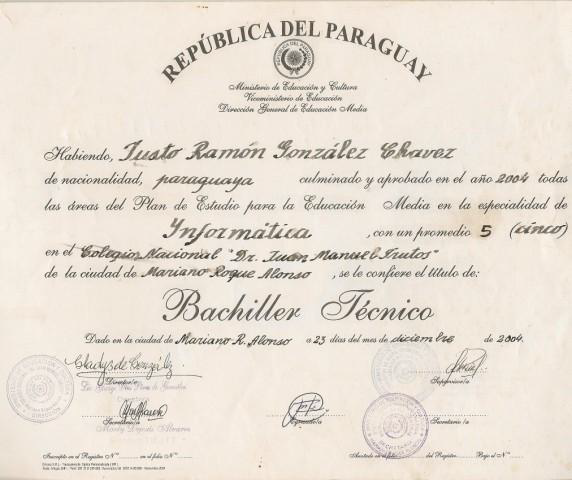 REPÚBLICA DEL PARAGUAY
Ministerio de Educación y Cultura
Viceministerio de Educación
Dirección General de Educación Media
Habiendo, Justo Ramón González Chavez
de nacionalidad, paraguaya culminado y aprobado en el año 2004 todas
las áreas del Plan de Estudio para la Educación Media en la especialidad de
Informática, con un promedio 5 (cinco)
en el Colegio Nacional "Dr. Juan Manuel Frutos"
de la ciudad de Mariano Roque Alonso, se le confiere el título de:
Bachiller Técnico
Dado en la ciudad de Mariano R. Alonso a 23 días del mes de diciembre de 2004.
Gladys de González.
Director/a
Supervisor/a
Secretario/a
Egresado/a
Secretario/a
Inscripto en el Registro Nº en el folio Nº
Anotado en el folio del Registro Bajo el Nº